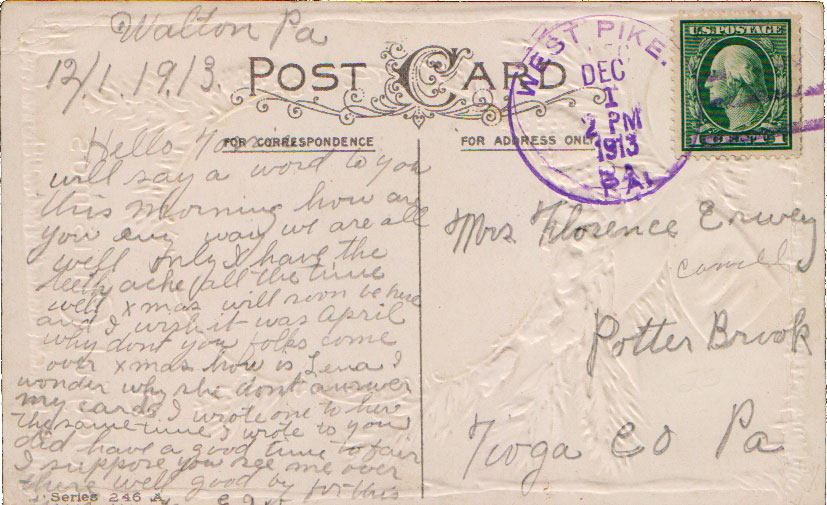 Walton Pa
12/1.1913.
POST CARD
FOR CORRESPONDENCE
Hello
will say a word to you
this morning how are
you any way we are all
well only I have the
teeth ache all the time
well xmas will soon be here
and I wish it was April
why dont you folks come
over xmas how is Lena I
wonder why she dont answer
my cards I wrote one to here
the same time I wrote to you
did have a good time to fair
I suppose you see me over
there well good by for this
Series 246 A
FOR ADDRESS ONLY
WEST PIKE.
DEC
1
2 PM
1913
PA.
U.S. POSTAGE
Mrs Florence Erway
Potter Brook
Tioga Co Pa